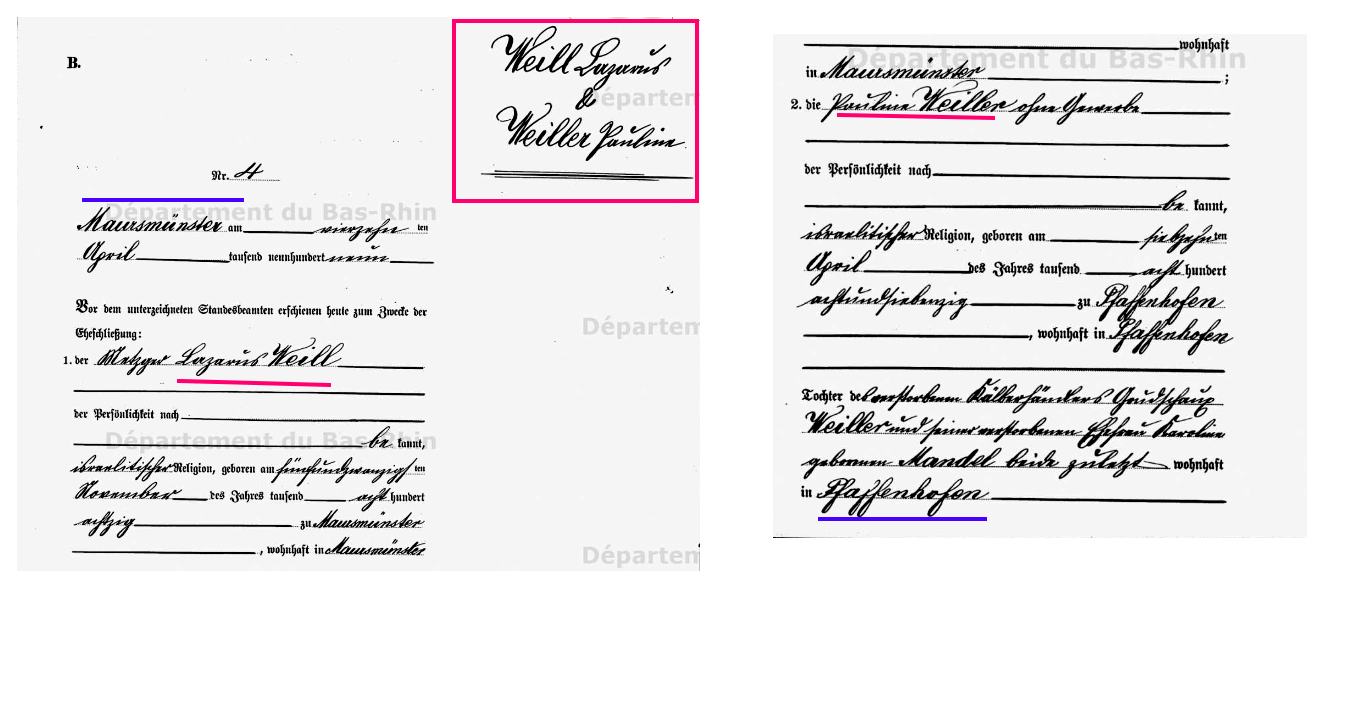 B.
Weill Lazarus
&
Weiller Pauline
Nr. 4
Département du Bas-Rhin
Maursmünster am vierzehn ten
April tausend neunhundert neun
Vor dem unterzeichneten Standesbeamten erschienen heute zum Zwecke der
Eheschließung:
1. der Metzger Lazarus Weill
der Persönlichkeit nach
Département du Bas-Rhin
be kannt,
israelitischer Religion, geboren am fünfundzwanzigs ten
November des Jahres tausend acht hundert
achtzig zu Maursmünster
, wohnhaft in Maursmünster
Départem
Départem
Départem
wohnhaft
Département du Bas-Rhin
in Maursmünster ;
2. die Pauline Weiller ohne Gewerbe
der Persönlichkeit nach
be kannt,
israelitischer Religion, geboren am siebzehn ten
April des Jahres tausend acht hundert
achtundsiebenzig zu Pfaffenhofen
, wohnhaft in Pfaffenhofen
Tochter des verstorbenen Kälberhändlers Gudschaux
Weiller und seiner verstorbenen Ehefrau Karoline
geborenen Mandel beide zuletzt wohnhaft
in Pfaffenhofen